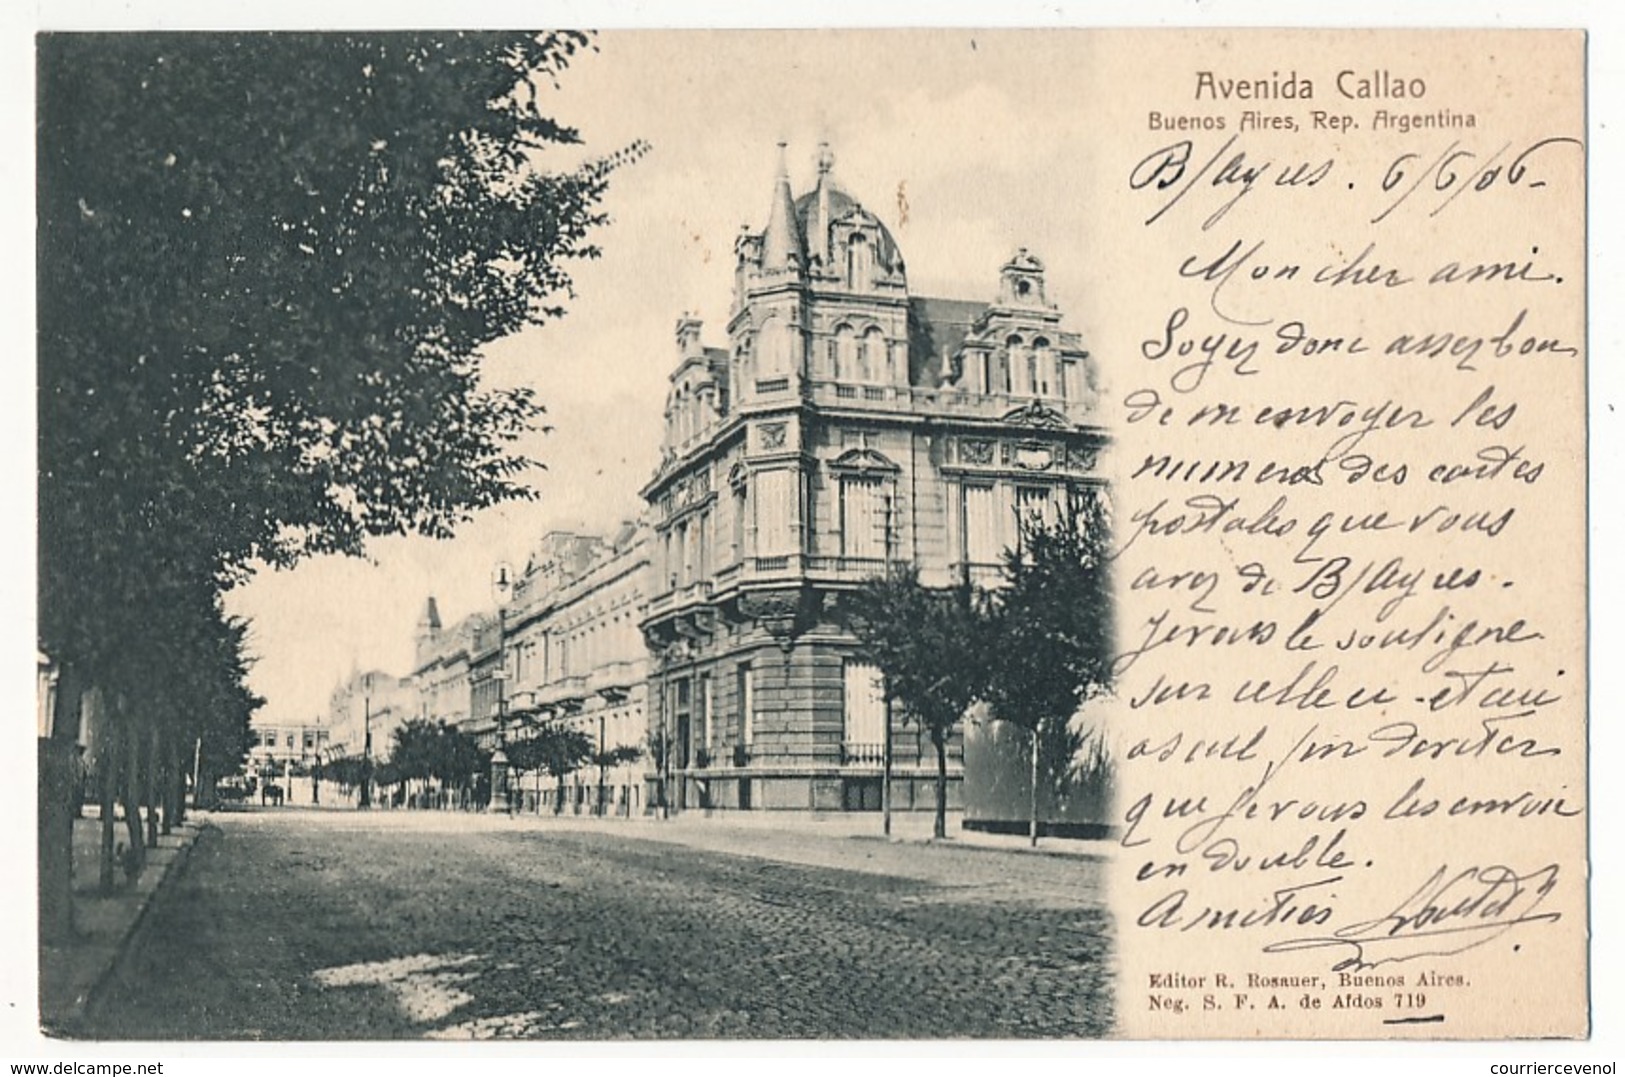 Avenida Callao
Buenos Aires, Rep. Argentina
B/Ayres. 6/6/06-
Mon cher ami.
Soyez donc assez bon
de m envoyer les
numeros des cartes
postales que vous
avez de B/Ayres.
Je vous le souligne
sur celle ci - et ainsi
pour eviter
que Je vous les envoie
en double.
Amitiés
Editor R. Rosauer, Buenos Aires.
Neg. S. F. A. de Afdos 719
www.delcampe.net
courriercevenol